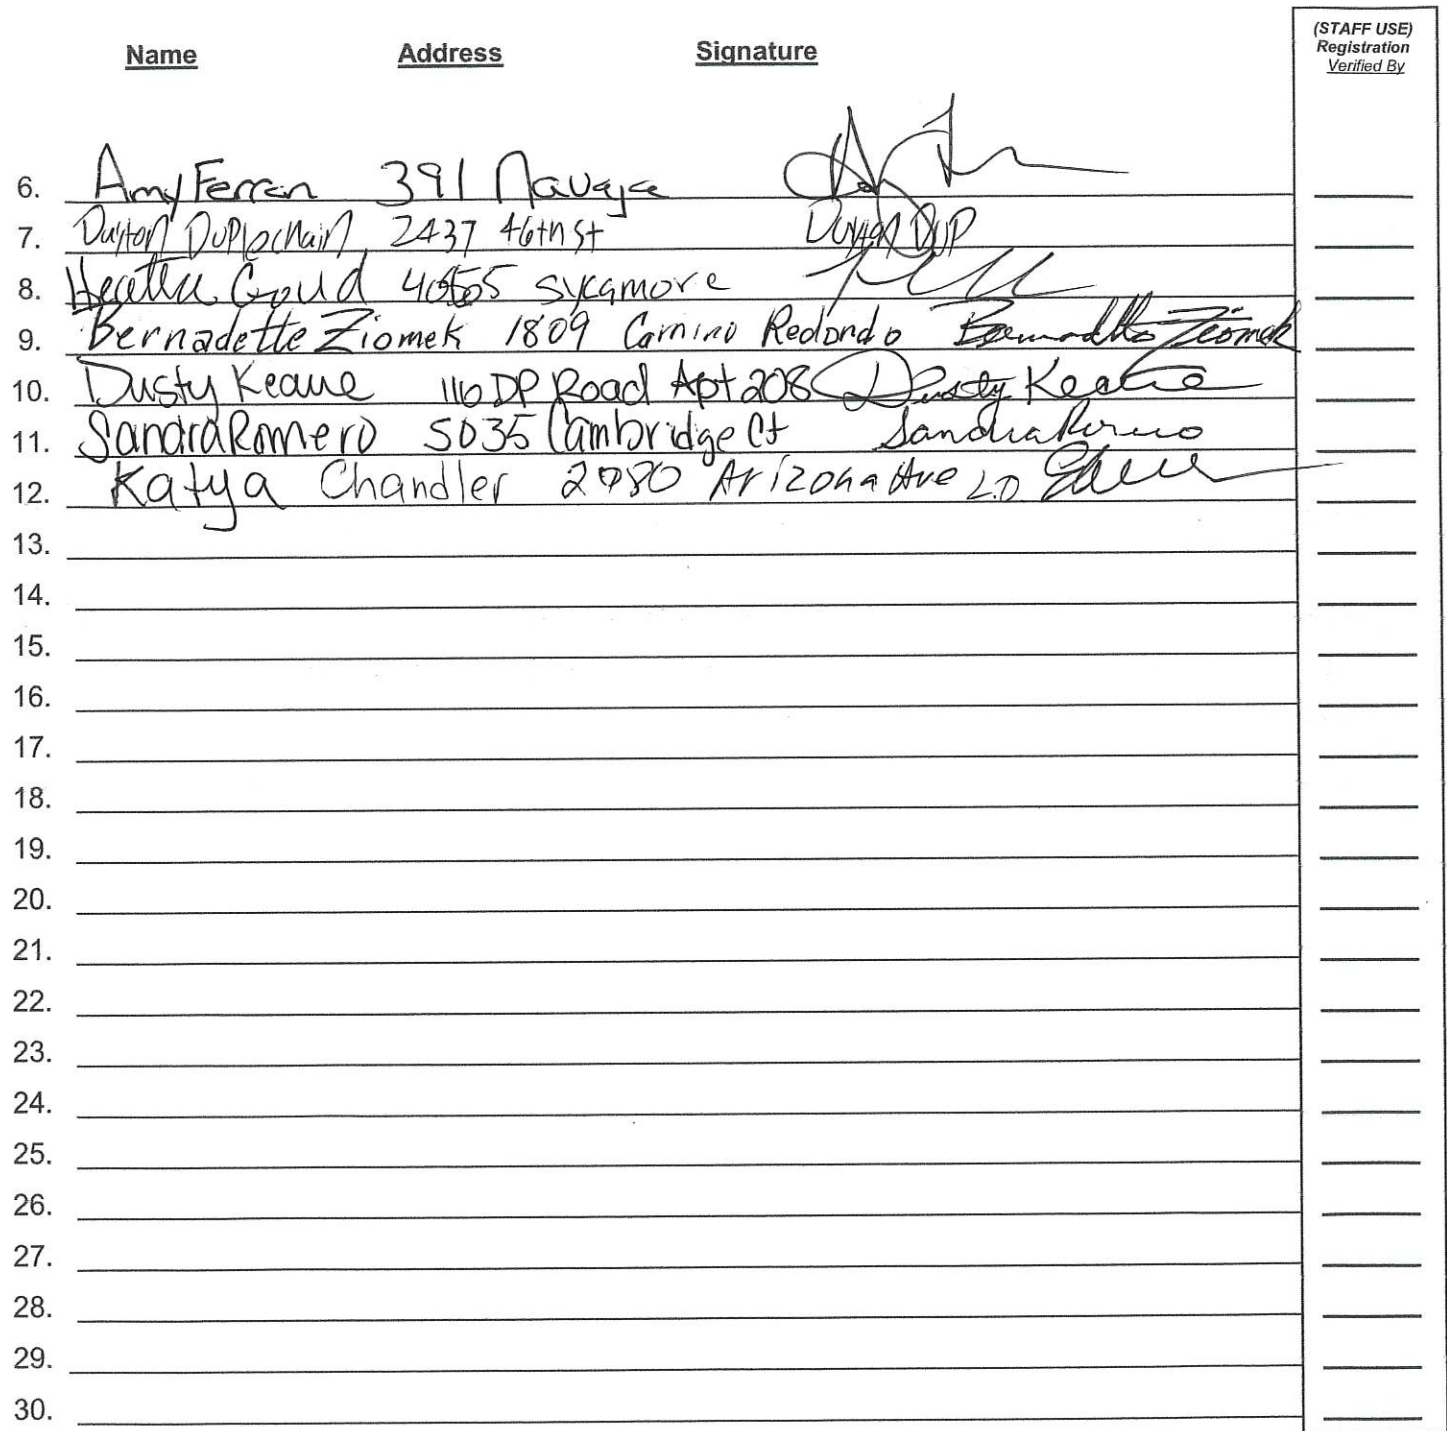 Name Address Signature
(STAFF USE)
Registration
Verified By
6. Amy Ferran 391 Navajo
7. Dayton Duplechain 2437 46th St Dayton Dup
8. Heather Goud sycamore
9. Bernadette Ziomek 1809 Camino Redondo Bernadette Ziomek
10. Dusty Keane 116 DP Road Apt 208 Dusty Keane
11. Sandra Romero 5035 Cambridge Ct Sandra Romero
12. Katya Chandler Arizona Ave
13.
14.
15.
16.
17.
18.
19.
20.
21.
22.
23.
24.
25.
26.
27.
28.
29.
30.